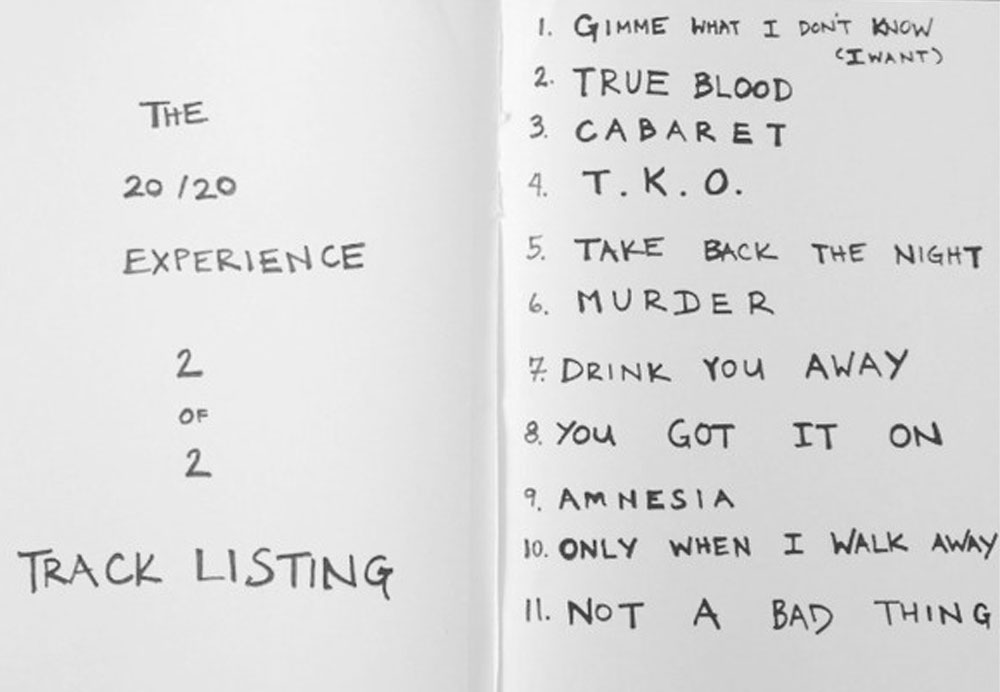 THE
20/20
EXPERIENCE
2
OF
2
TRACK LISTING
1. GIMME WHAT I DON'T KNOW
(I WANT)
2. TRUE BLOOD
3. CABARET
4. T.K.O.
5. TAKE BACK THE NIGHT
6. MURDER
7. DRINK YOU AWAY
8. YOU GOT IT ON
9. AMNESIA
10. ONLY WHEN I WALK AWAY
11. NOT A BAD THING